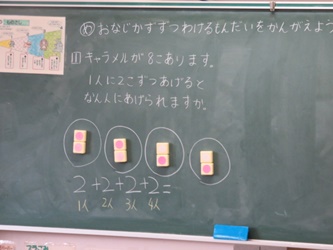 め おなじかずずつわけるもんだいをかんがえよう
1 キャラメルが8こあります。
1人に2こずつあげると
なん人にあげられますか。
2+2+2+2=
1人 2人 3人 4人